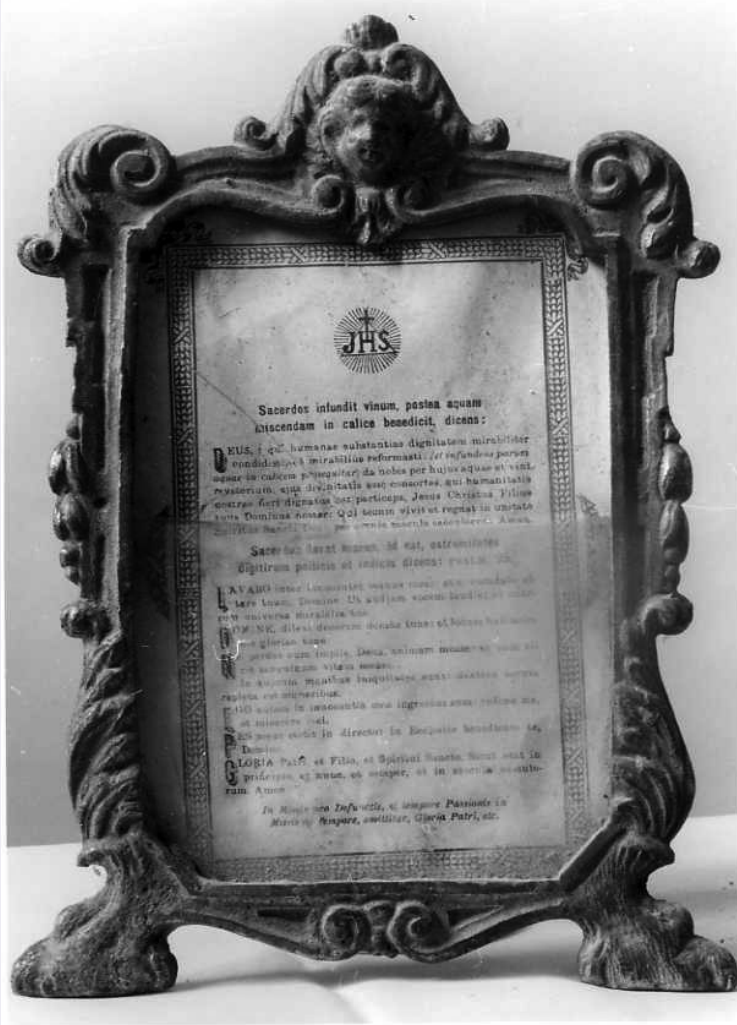 JHS
Sacerdos infundit vinum, postea aquam
miscendam in calice benedicit, dicens:
DEUS, qui humanae substantiae dignitatem mirabiliter
condidisti, et mirabilius reformasti: (et infundens parum
aquae in calicem prosequitur) da nobis per hujus aquae et vini
mysterium, ejus divinitatis esse consortes, qui humanitatis
nostrae fieri dignatus est particeps, Jesus Christus Filius
tuus Dominus noster: Qui tecum vivit et regnat in unitate
Spiritus Sancti Deus per omnia saecula saeculorum. Amen.
Sacerdos lavat manus, id est, extremitates
digitorum pollicis et indicis dicens:
LAVABO inter innocentes manus meas: et
tare tuum, Domine. Ut audiam vocem laudis, et
universa mirabilia tua.
DOMINE, dilexi decorem domus tuae: et locum
gloriae tuae.
NE perdas cum impiis, Deus, animam meam: et cum
vitam meam.
In quorum manibus iniquitates sunt: dextera eorum
repleta est muneribus.
EGO autem in innocentia mea ingressus sum: redime me,
et miserere mei.
PES meus stetit in directo: in Ecclesiis benedicam te,
Domine.
GLORIA Patri, et Filio, et Spiritui Sancto. Sicut erat in
principio, et nunc, et semper, et in saecula saeculo-
rum. Amen
In Missis pro Defunctis, et tempore Passionis in
Missis de tempore, omittitur, Gloria Patri, etc.